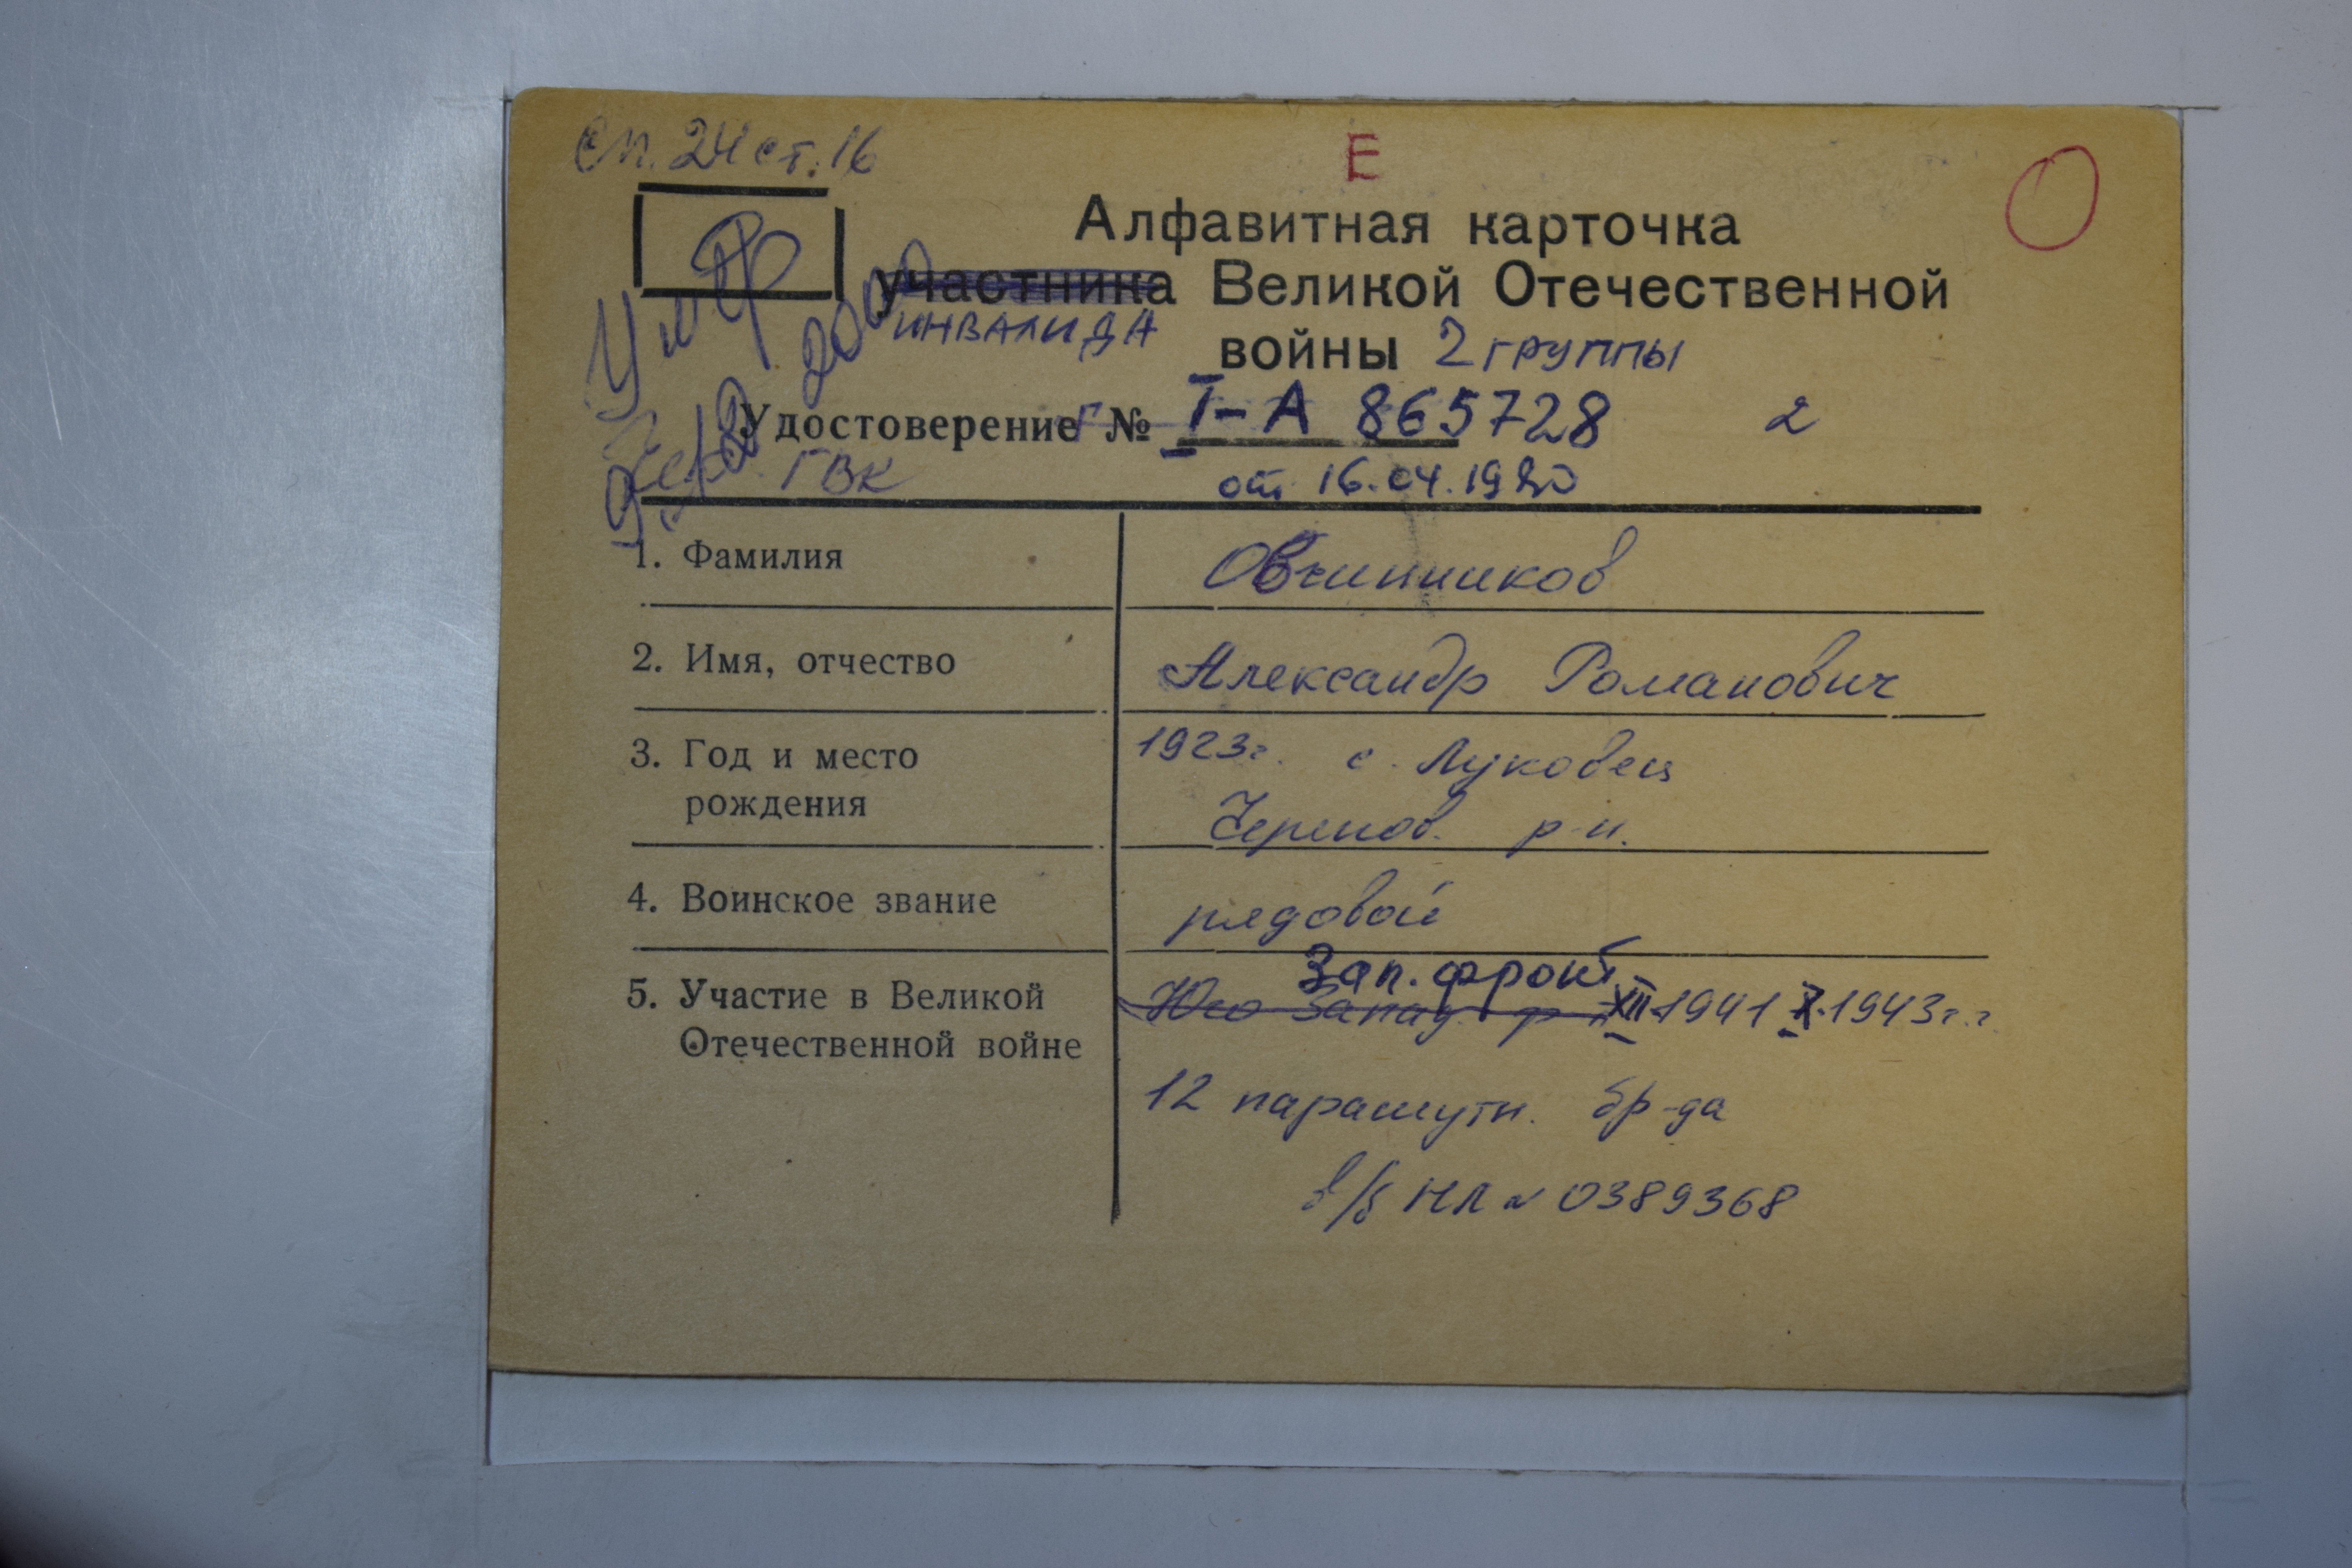 Сп. 24 ст. 16
Е
О
Алфавитная карточка
участника Великой Отечественной
инвалида
войны 2 группы
Умер
2000
Удостоверение № I-А 865728 2
ГВК от 16.04.1980
1. Фамилия Овчинников
2. Имя, отчество Александр Романович
3. Год и место 1923г. с. Луковец
рождения Черепов. р-н.
4. Воинское звание рядовой
Зап. фронт
5. Участие в Великой Юго Запад. ф XII.1941 X.1943г.г.
Отечественной войне
12 парашутн. бр-да
в/б НЛ № 0389368